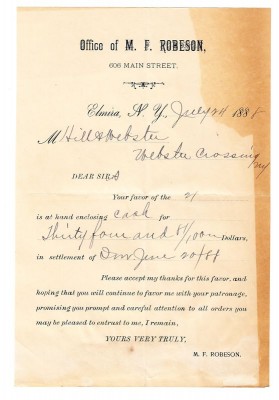 Office of M. F. ROBESON,
606 MAIN STREET.
Elmira, N. Y., July 24 1888
M Hill & Webster
Webster Crossing
NY
DEAR SIRS
Your favor of the 21
is at hand enclosing cash for
Thirty four and /100 Dollars,
in settlement of Inv June 20/88
Please accept my thanks for this favor, and
hoping that you will continue to favor me with your patronage,
promising you prompt and careful attention to all orders you
may be pleased to entrust to me, I remain,
YOURS VERY TRULY,
M. F. ROBESON.